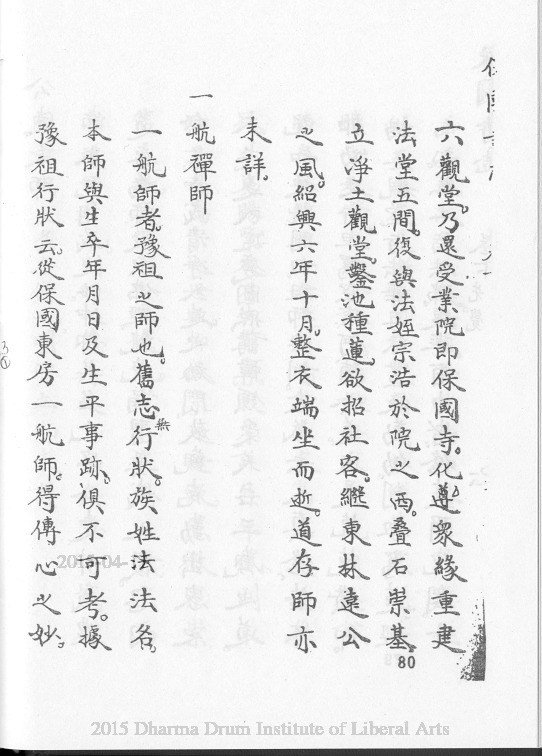 六觀堂。乃還受業院即保國寺。化導眾緣重建
法堂五間。復與法姪宗浩於院之西。疊石崇基。
立淨土觀堂。鑿池種蓮欲招社客。繼東林遠公
之風。紹興六年十月。整衣端坐而逝。道存師亦
未詳。
一航禪師
一航師者。豫祖之師也。舊志無行狀。族姓法法名。
本師與生卒年月日及生平事跡。俱不可考。據
豫祖行狀云。從保國東房一航師。得傳心之妙。
80
2015-04-
2015 Dharma Drum Institute of Liberal Arts